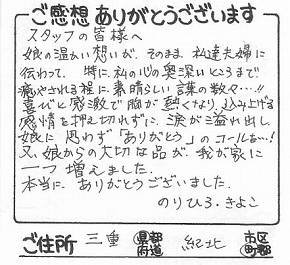 ご感想ありがとうございます
スタッフの皆様へ
娘の温かい想いが、そのまま私達夫婦に
伝わって、特に、私の心の奥深いところまで
癒やされる程に素晴らしい言葉の数々…!!
喜びと感激で胸が熱くなり、込み上げる
感情を押え切れずに、涙が溢れ出し
娘に思わず「ありがとう」のコールを…!
又、娘からの大切な品が、我が家に
一つ増えました。
本当に、ありがとうございました。
のりひろ・きよこ
ご住所 三重 都道府県 紀北 市区町郡